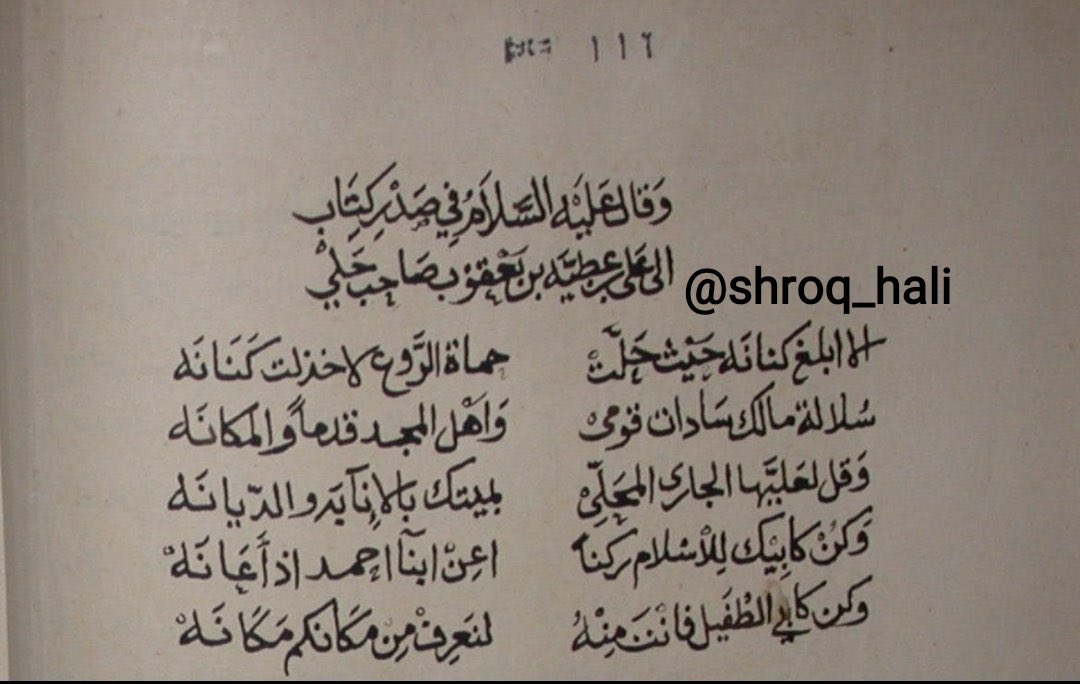 ١١٦
وَقَالَ عَلَيْهِ السَّلَامُ فِي صَدْرِ كِتَابٍ
الى عَلى بن عطيَّه بن يَعْقُوب صَاحِبِ حَلْي
@shroq_hali
الا ابلغ كنانَه حَيْثُ حَلَّتْ حماة الرَّوع لا خذلت كَنَانَه
سُلالة مالك سَادات قومى وَاَهْل المجد قدماً والمكانَه
وَقل لعَليِّها الجارى المحَلِّى
وَكنْ كَابيْك لِلْاسْلام ركناً اعِنْ ابنآ احمد اذ أَعَانَهْ
وكن كابي الطُفَيل فانت مِنْهُ لنَعرِفْ مِن مكَانكم مَكَانَهْ